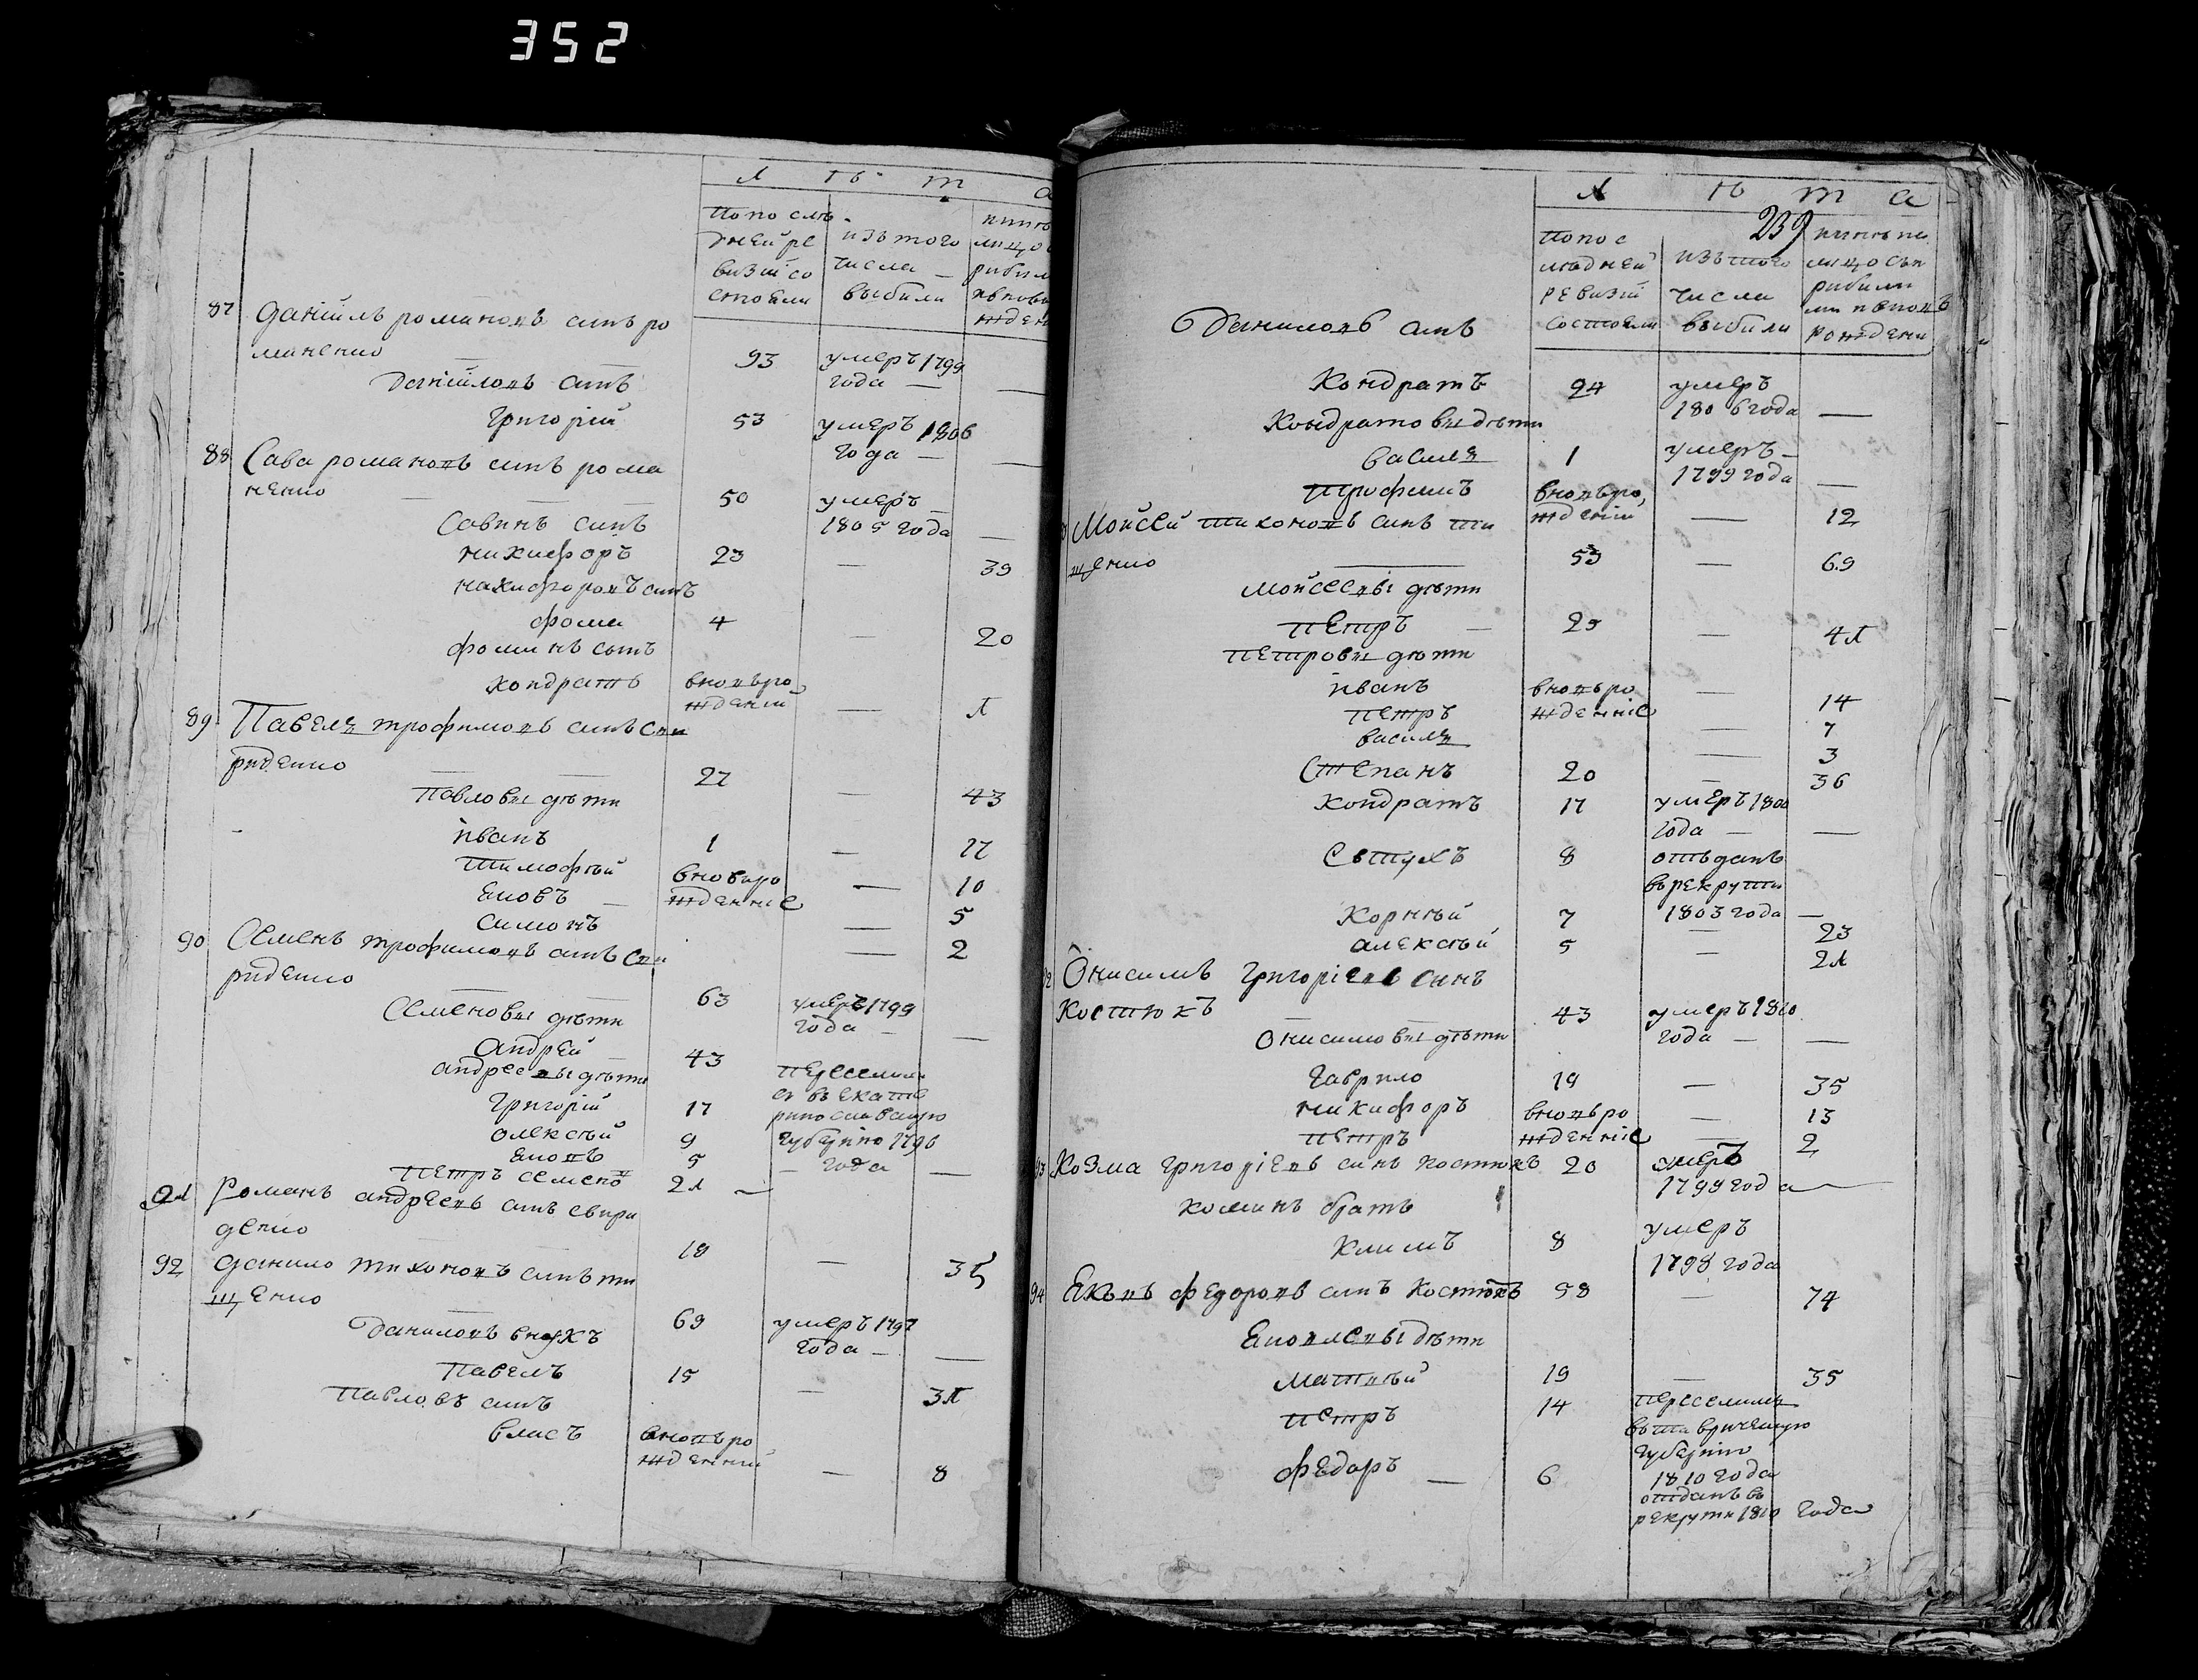 352
Л ѣ т а
по послѣ
дней ре
визіи со
стояли
изъ того
числа
выбыли
87 Даніилъ романовъ сынъ ро
маненко 93 умеръ 1799
года —
Даніиловъ сынъ
Григорій 53 умеръ 1806
года — —
88 Сава романовъ сынъ рома
ненко 50 умеръ —
1805 года —
Савинъ сынъ
никифоръ 23 — 39
никифоровъ сынъ
фома 4 — 20
фоминъ сынъ
кондратъ вновьро
жденій — 1
89 Павелъ трофимовъ сынъ Спи
риденко 27 — 43
Павловы дѣти
иванъ 1 — 17
тимофѣй вновьро
жденніе — 10
яковъ — 5
симонъ — 2
90 Семенъ трофимовъ сынъ Спи
риденко 63 умеръ 1799
года — —
Семеновы дѣти
Андрей 43 переселил
андреевы дѣти ся въ екате
Григорій 17 ринославскую
олексѣй 9 губернію 1796
яковъ 5 — года —
петръ семено 21
91 Романъ андреевъ сынъ свири
денко 19 — 35
92 Данило тихоновъ сынъ ти
щенко 69 умеръ 1797
года — —
Даниловъ внукъ
Павелъ 15 — 31
Павловъ сынъ
власъ вновьро
жденный — 8
Л ѣ т а
239
по пос
лѣдней
ревизіи
состояли
изъ того
числа
выбыли
нынѣ на
лицо съ
рожденны
Даниловъ сынъ
Кондратъ 24 умеръ
1806 года —
Кондратовы дѣти
василь 1 умеръ —
1799 года —
трофимъ вновьро
жденій — 12
Мойсей тихоновъ сынъ ти
щенко 53 — 69
мойсеевы дѣти
петръ — 25 — 41
петровы дѣти
иванъ вновьро — 14
петръ жденніе — 7
василь — 3
Степанъ 20 — 36
кондратъ 17 умеръ 1800
года — —
Евтухъ 8 отъданъ
въ рекруты
1803 года —
Корнѣй 7 — 23
алексѣй 5 — 21
Онисимъ Григоріевъ синъ
Костюкъ 43 умеръ 1810
года — —
Онисимовы дѣти
Гаврило 19 — 35
никифоръ вновьро — 13
петръ жденніе — 2
93 Козма григоріевъ синъ костюкъ 20 умеръ
1799 года —
козминъ братъ
климъ 8 умеръ
1798 года
94 Яковъ федоровъ синъ костюкъ 58 — 74
Яковлевы дѣти
матвѣй 19 — 35
петръ 14 переселилъ
въ таврическую
губернію
1810 года
федоръ — 6 отданъ въ
рекруты 1810 года